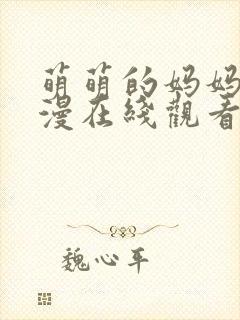 萌萌的妈妈
漫在綫觀看
魏心平